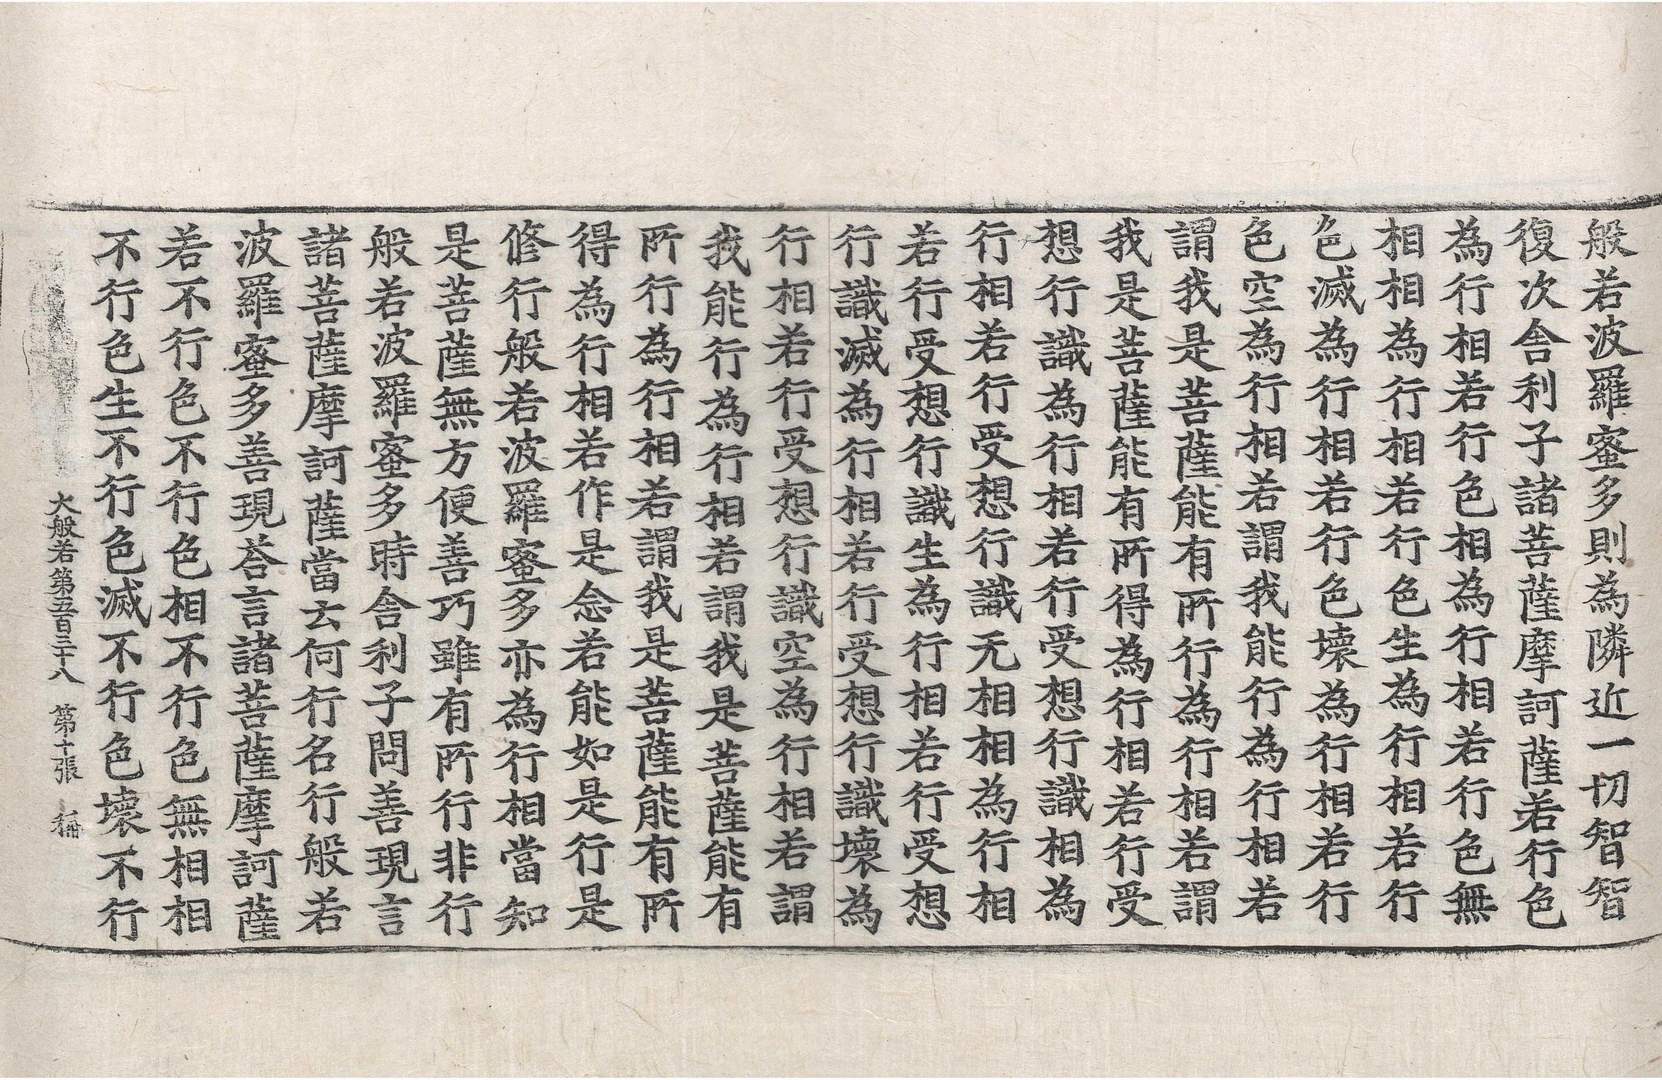 般若波羅蜜多則為隣近一切智智
復次舍利子諸菩薩摩訶薩若行色
為行相若行色相為行相若行色無
相相為行相若行色生為行相若行
色滅為行相若行色壞為行相若行
色空為行相若謂我能行為行相若
謂我是菩薩能有所行為行相若謂
我是菩薩能有所得為行相若行受
想行識為行相若行受想行識相為
行相若行受想行識无相相為行相
若行受想行識生為行相若行受想
行識滅為行相若行受想行識壞為
行相若行受想行識空為行相若謂
我能行為行相若謂我是菩薩能有
所行為行相若謂我是菩薩能有所
得為行相若作是念若能如是行是
修行般若波羅蜜多亦為行相當知
是菩薩無方便善巧雖有所行非行
般若波羅蜜多時舍利子問善現言
諸菩薩摩訶薩當云何行名行般若
波羅蜜多善現荅言諸菩薩摩訶薩
若不行色不行色相不行色無相相
不行色生不行色滅不行色壞不行
大般若第五百三十八 第十張 稱